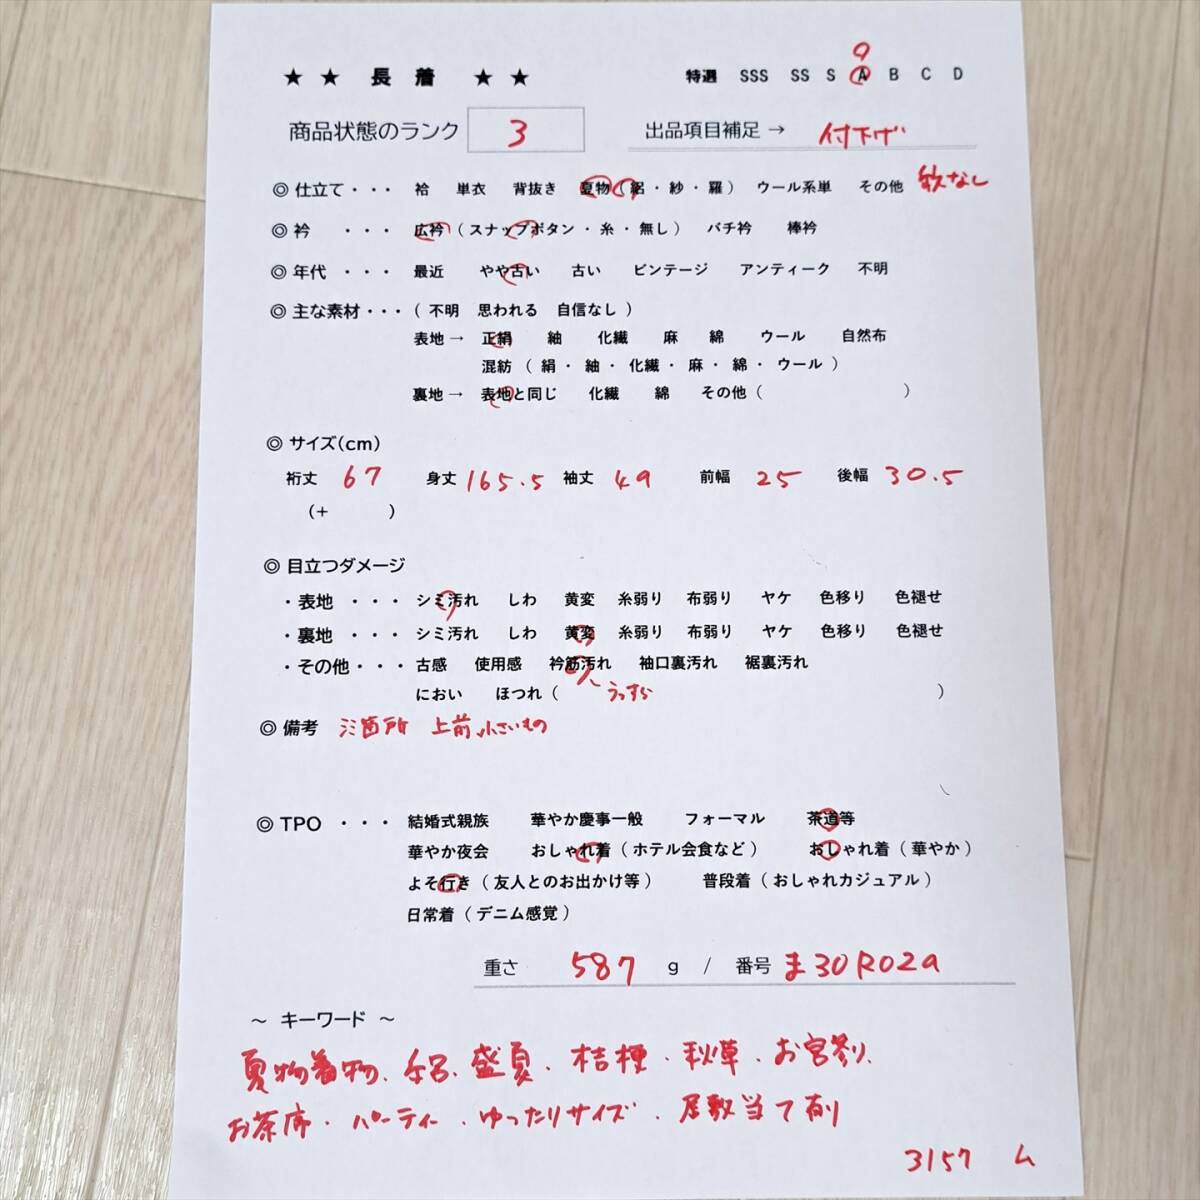 9
★ ★ 長 着 ★ ★ 特選 SSS SS S A B C D
商品状態のランク 3 出品項目補足 → 付下げ
◎ 仕立て・・・ 袷 単衣 背抜き 夏物 ( 絽・紗・羅 ) ウール系単 その他 紋なし
◎ 衿 ・・・ 広衿 ( スナップボタン・糸・無し ) バチ衿 棒衿
◎ 年代 ・・・ 最近 やや古い 古い ビンテージ アンティーク 不明
◎ 主な素材・・・ ( 不明 思われる 自信なし )
表地 → 正絹 紬 化繊 麻 綿 ウール 自然布
混紡 ( 絹・紬・化繊・麻・綿・ウール )
裏地 → 表地と同じ 化繊 綿 その他 ( )
◎ サイズ(cm)
裄丈 67 身丈 165.5 袖丈 49 前幅 25 後幅 30.5
(+ )
◎ 目立つダメージ
・表地 ・・・ シミ汚れ しわ 黄変 糸弱り 布弱り ヤケ 色移り 色褪せ
・裏地 ・・・ シミ汚れ しわ 黄変 糸弱り 布弱り ヤケ 色移り 色褪せ
・その他・・・ 古感 使用感 衿筋汚れ 袖口裏汚れ 裾裏汚れ
におい ほつれ ( うっすら )
◎ 備考 シミ箇所 上前 小さいもの
◎ TPO ・・・ 結婚式親族 華やか慶事一般 フォーマル 茶道等
華やか夜会 おしゃれ着 ( ホテル会食など ) おしゃれ着 ( 華やか )
よそ行き ( 友人とのお出かけ等 ) 普段着 ( おしゃれカジュアル )
日常着 ( デニム感覚 )
重さ 587 g / 番号 ま30R02a
～ キーワード ～
夏物着物、絽、盛夏、桔梗、秋草、お宮参り、
お茶席、パーティー、ゆったりサイズ、居敷当て有り
3157 ム